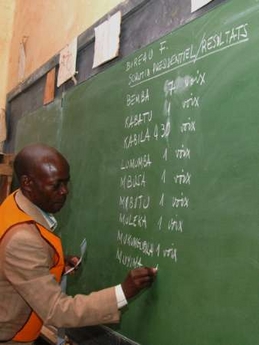 BUREAU F.
SCRUTIN PRESIDENTIEL/RESULTATS
BEMBA 17 voix
KABATU 1 voix
KABILA 430 voix
LUMUMBA 1 voix
MBUSA 1 voix
MOBUTU 1 voix
MULEKA 1 voix
MUKUNGUBILA 1 voix